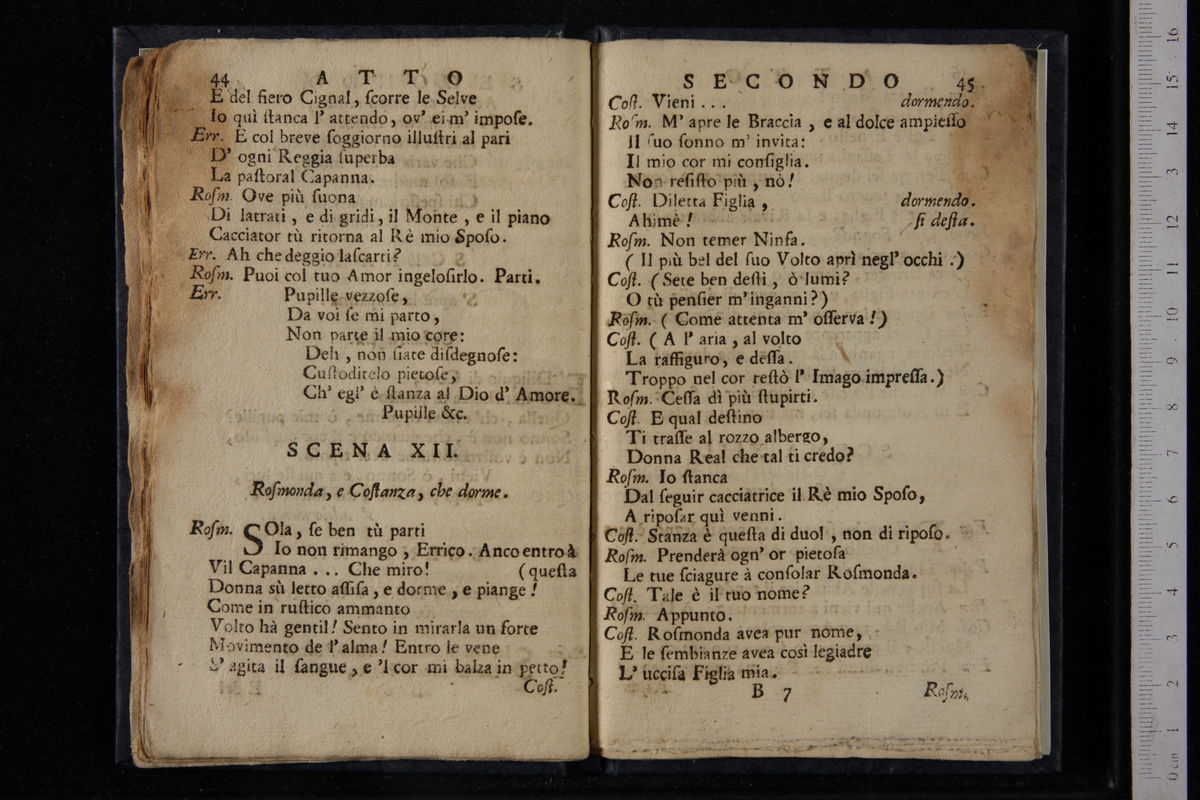 44 ATTO
E del fiero Cignal, ſcorre le Selve
Io quì ſtanca l' attendo, ov' ei m' impoſe.
Err. E col breve ſoggiorno illuſtri al pari
D' ogni Reggia ſuperba
La paſtoral Capanna.
Roſm. Ove più ſuona
Di latrati, e di gridi, il Monte, e il piano
Cacciator tù ritorna al Rè mio Spoſo.
Err. Ah che deggio laſcarti?
Roſm. Puoi col tuo Amor ingeloſirlo. Parti.
Err. Pupille vezzoſe,
Da voi ſe mi parto,
Non parte il mio core:
Deh, non ſiate diſdegnoſe:
Cuſtoditelo pietoſe,
Ch' egl' è ſtanza al Dio d' Amore.
Pupille &c.
SCENA XII.
Roſmonda, e Coſtanza, che dorme.
Roſm. SOla, ſe ben tù parti
Io non rimango, Errico. Anco entro à
Vil Capanna . . . Che miro! (queſta
Donna sù letto aſſiſa, e dorme, e piange!
Come in ruſtico ammanto
Volto hà gentil! Sento in mirarla un forte
Movimento de l' alma! Entro le vene
S' agita il ſangue, e 'l cor mi balza in petto!
Coſt.
SECONDO 45
Coſt. Vieni . . . dormendo.
Roſm. M' apre le Braccia, e al dolce ampleſſo
Il ſuo ſonno m' invita:
Il mio cor mi conſiglia.
Non reſiſto più, nò!
Coſt. Diletta Figlia, dormendo.
Ahimè! ſi deſta.
Roſm. Non temer Ninfa.
( Il più bel del ſuo Volto aprì negl' occhi .)
Coſt. (Sete ben deſti, ò lumi?
O tù penſier m' inganni?)
Roſm. ( Come attenta m' oſſerva!)
Coſt. ( A l' aria, al volto
La raffiguro, e deſſa.
Troppo nel cor reſtò l' Imago impreſſa.)
Roſm. Ceſſa dì più ſtupirti.
Coſt. E qual deſtino
Ti traſſe al rozzo albergo,
Donna Real che tal ti credo?
Roſm. Io ſtanca
Dal ſeguir cacciatrice il Rè mio Spoſo,
A ripoſar quì venni.
Coſt. Stanza è queſta di duol, non di ripoſo.
Roſm. Prenderà ogn' or pietoſa
Le tue ſciagure à conſolar Roſmonda.
Coſt. Tale è il tuo nome?
Roſm. Appunto.
Coſt. Roſmonda avea pur nome,
E le ſembianze avea così legiadre
L' ucciſa Figlia mia.
B 7 Roſm.
0 cm 1 2 3 4 5 6 7 8 9 10 11 12 13 14 15 16